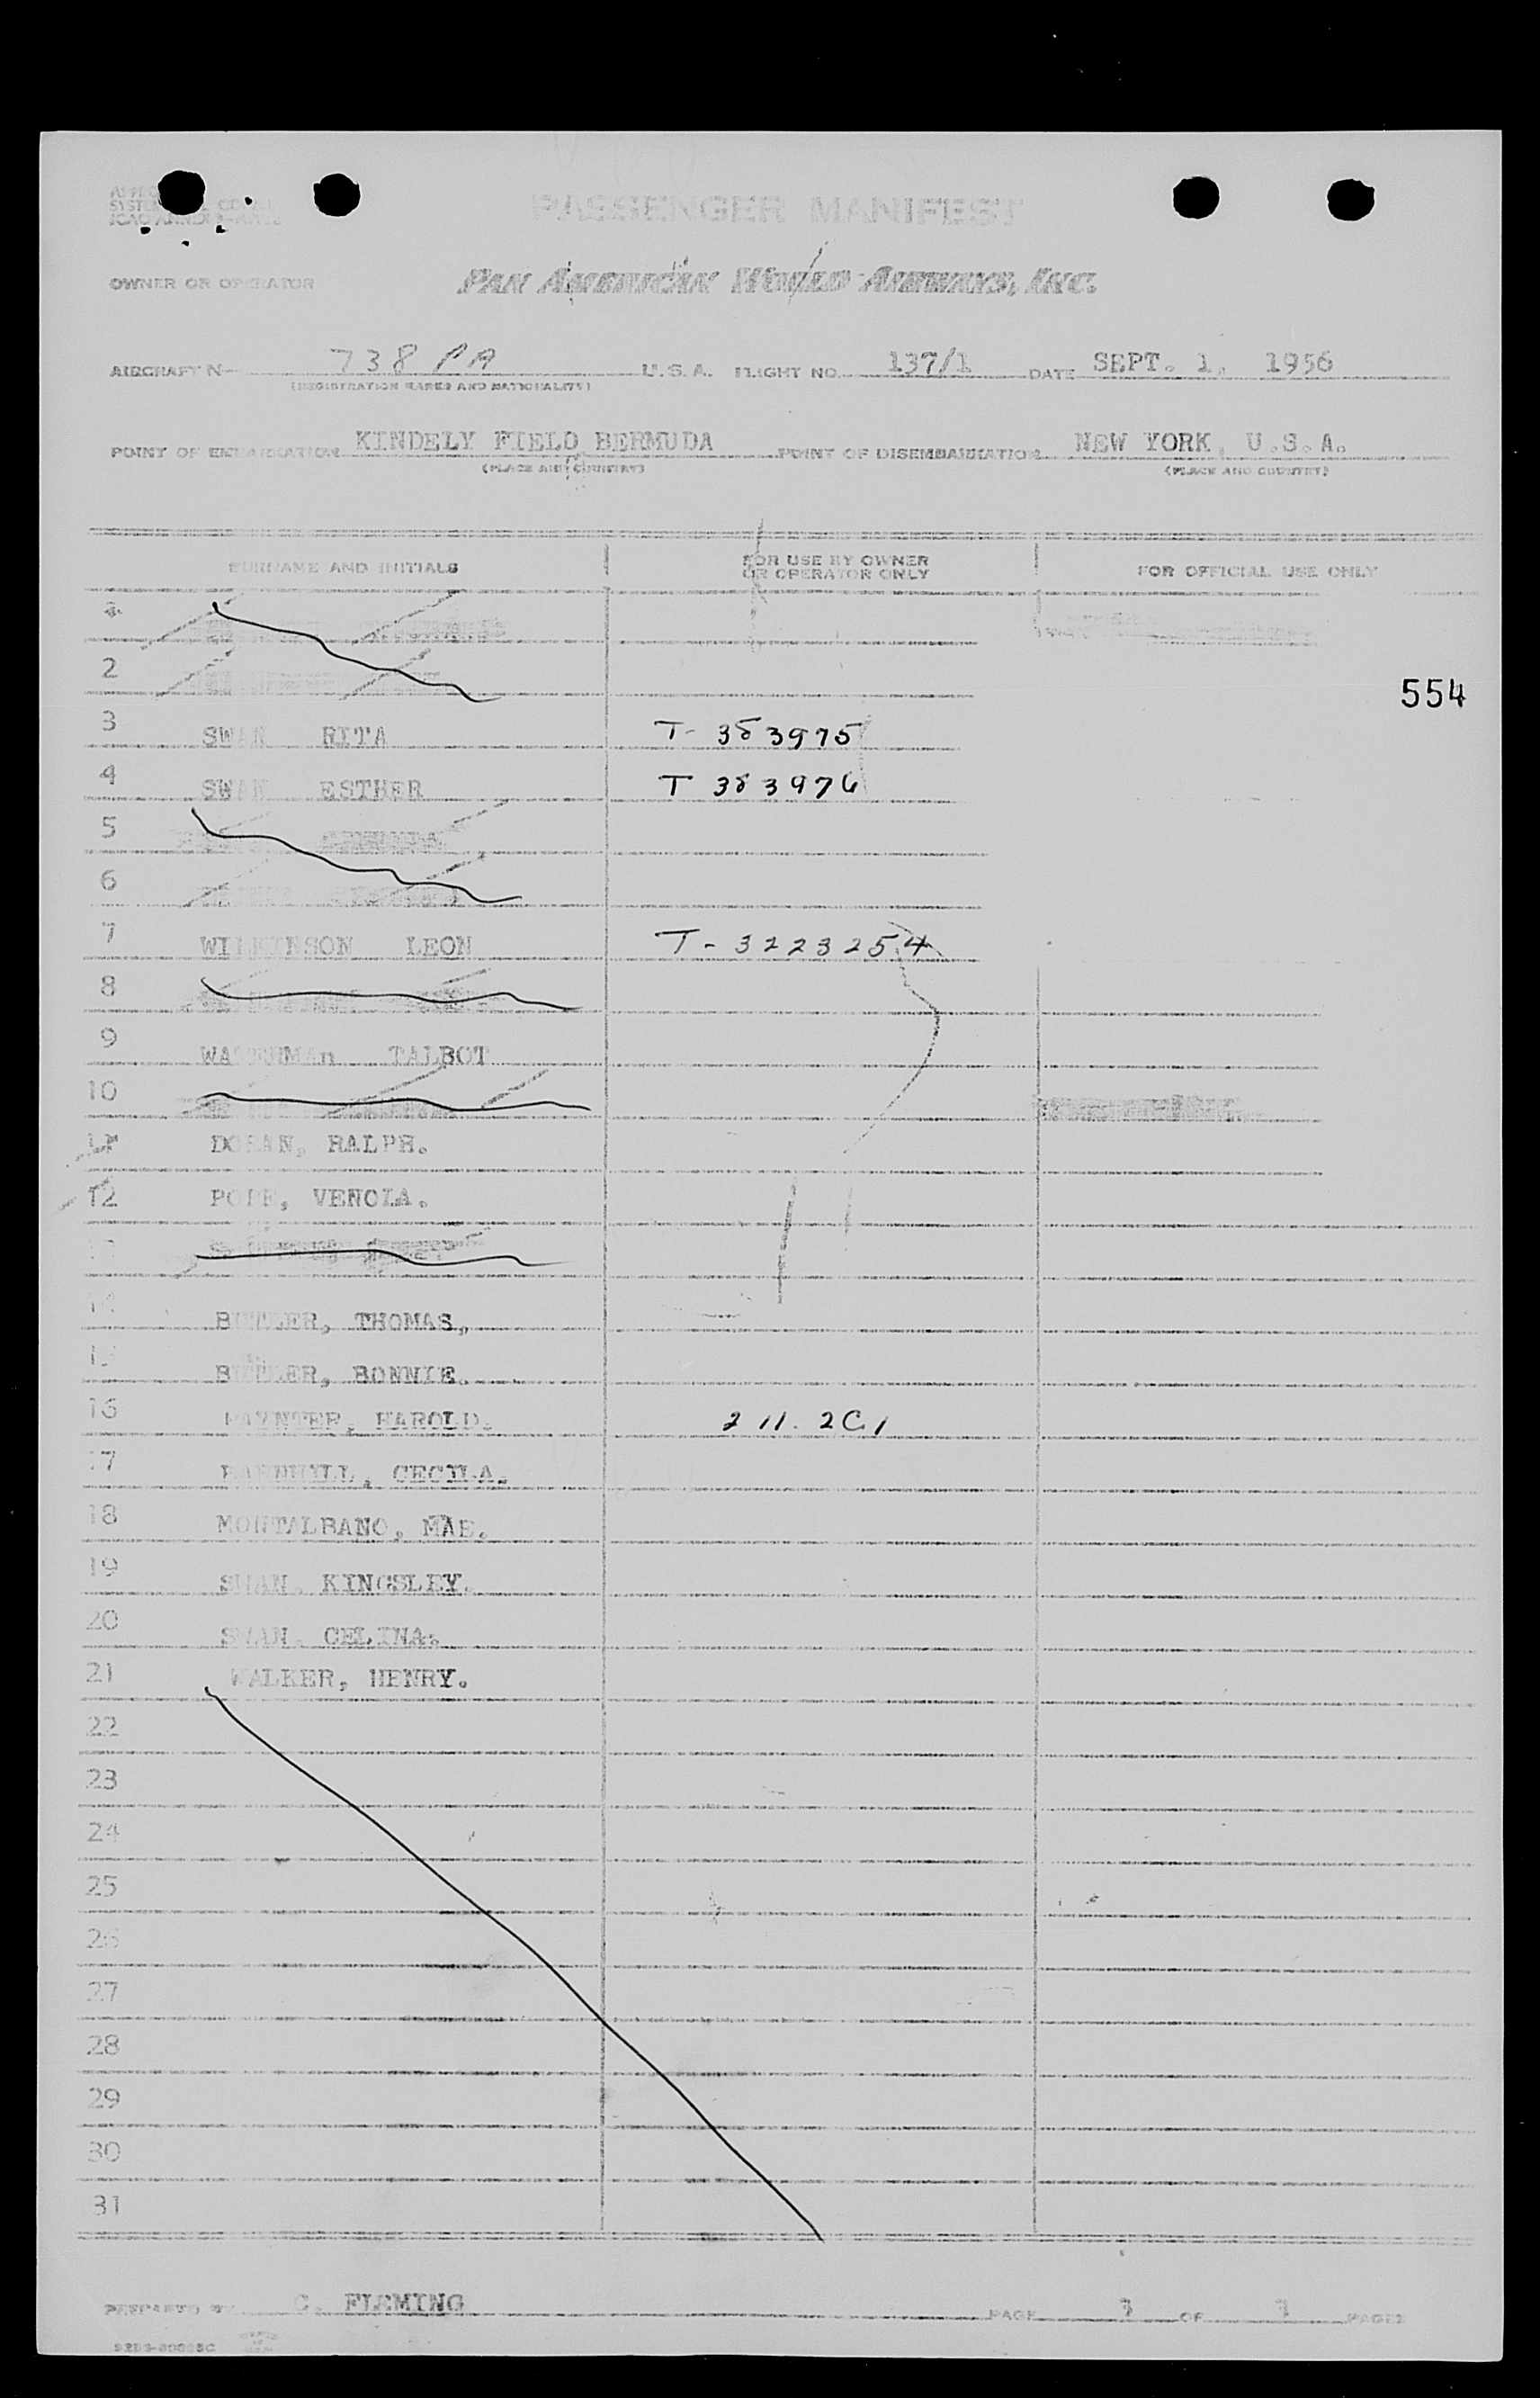 PASSENGER MANIFEST
OWNER OR OPERATOR PAN AMERICAN WORLD AIRWAYS, INC.
AIRCRAFT N 738 PA U.S.A. FLIGHT NO. 137/1 DATE SEPT. 1, 1956
(REGISTRATION MARKS AND NATIONALITY)
POINT OF EMBARKATION KINDELY FIELD BERMUDA POINT OF DISEMBARKATION NEW YORK, U.S.A.
(PLACE AND COUNTRY) (PLACE AND COUNTRY)
SURNAME AND INITIALS FOR USE BY OWNER OR OPERATOR ONLY FOR OFFICIAL USE ONLY
2
554
3 SWAN RITA T- 383975
4 SWAN ESTHER T 383976
5
6
7 WILKINSON LEON T- 3223254
8
9 WATERMAn TALBOT
10
11 RALPH.
12 POPE, VENOLA.
14 BUTLER, THOMAS,
15 BUTLER, BONNIE.
16 PAYNTER, HAROLD. 2 11. 2C1
17 CECILA.
18 MONTALBANO, MAE.
19 SWAN, KINGSLEY.
20 SWAN, CELINA.
21 WALKER, HENRY.
22
23
24
25
26
27
28
29
30
31
PREPARED BY C. FLEMING PAGE OF PAGES